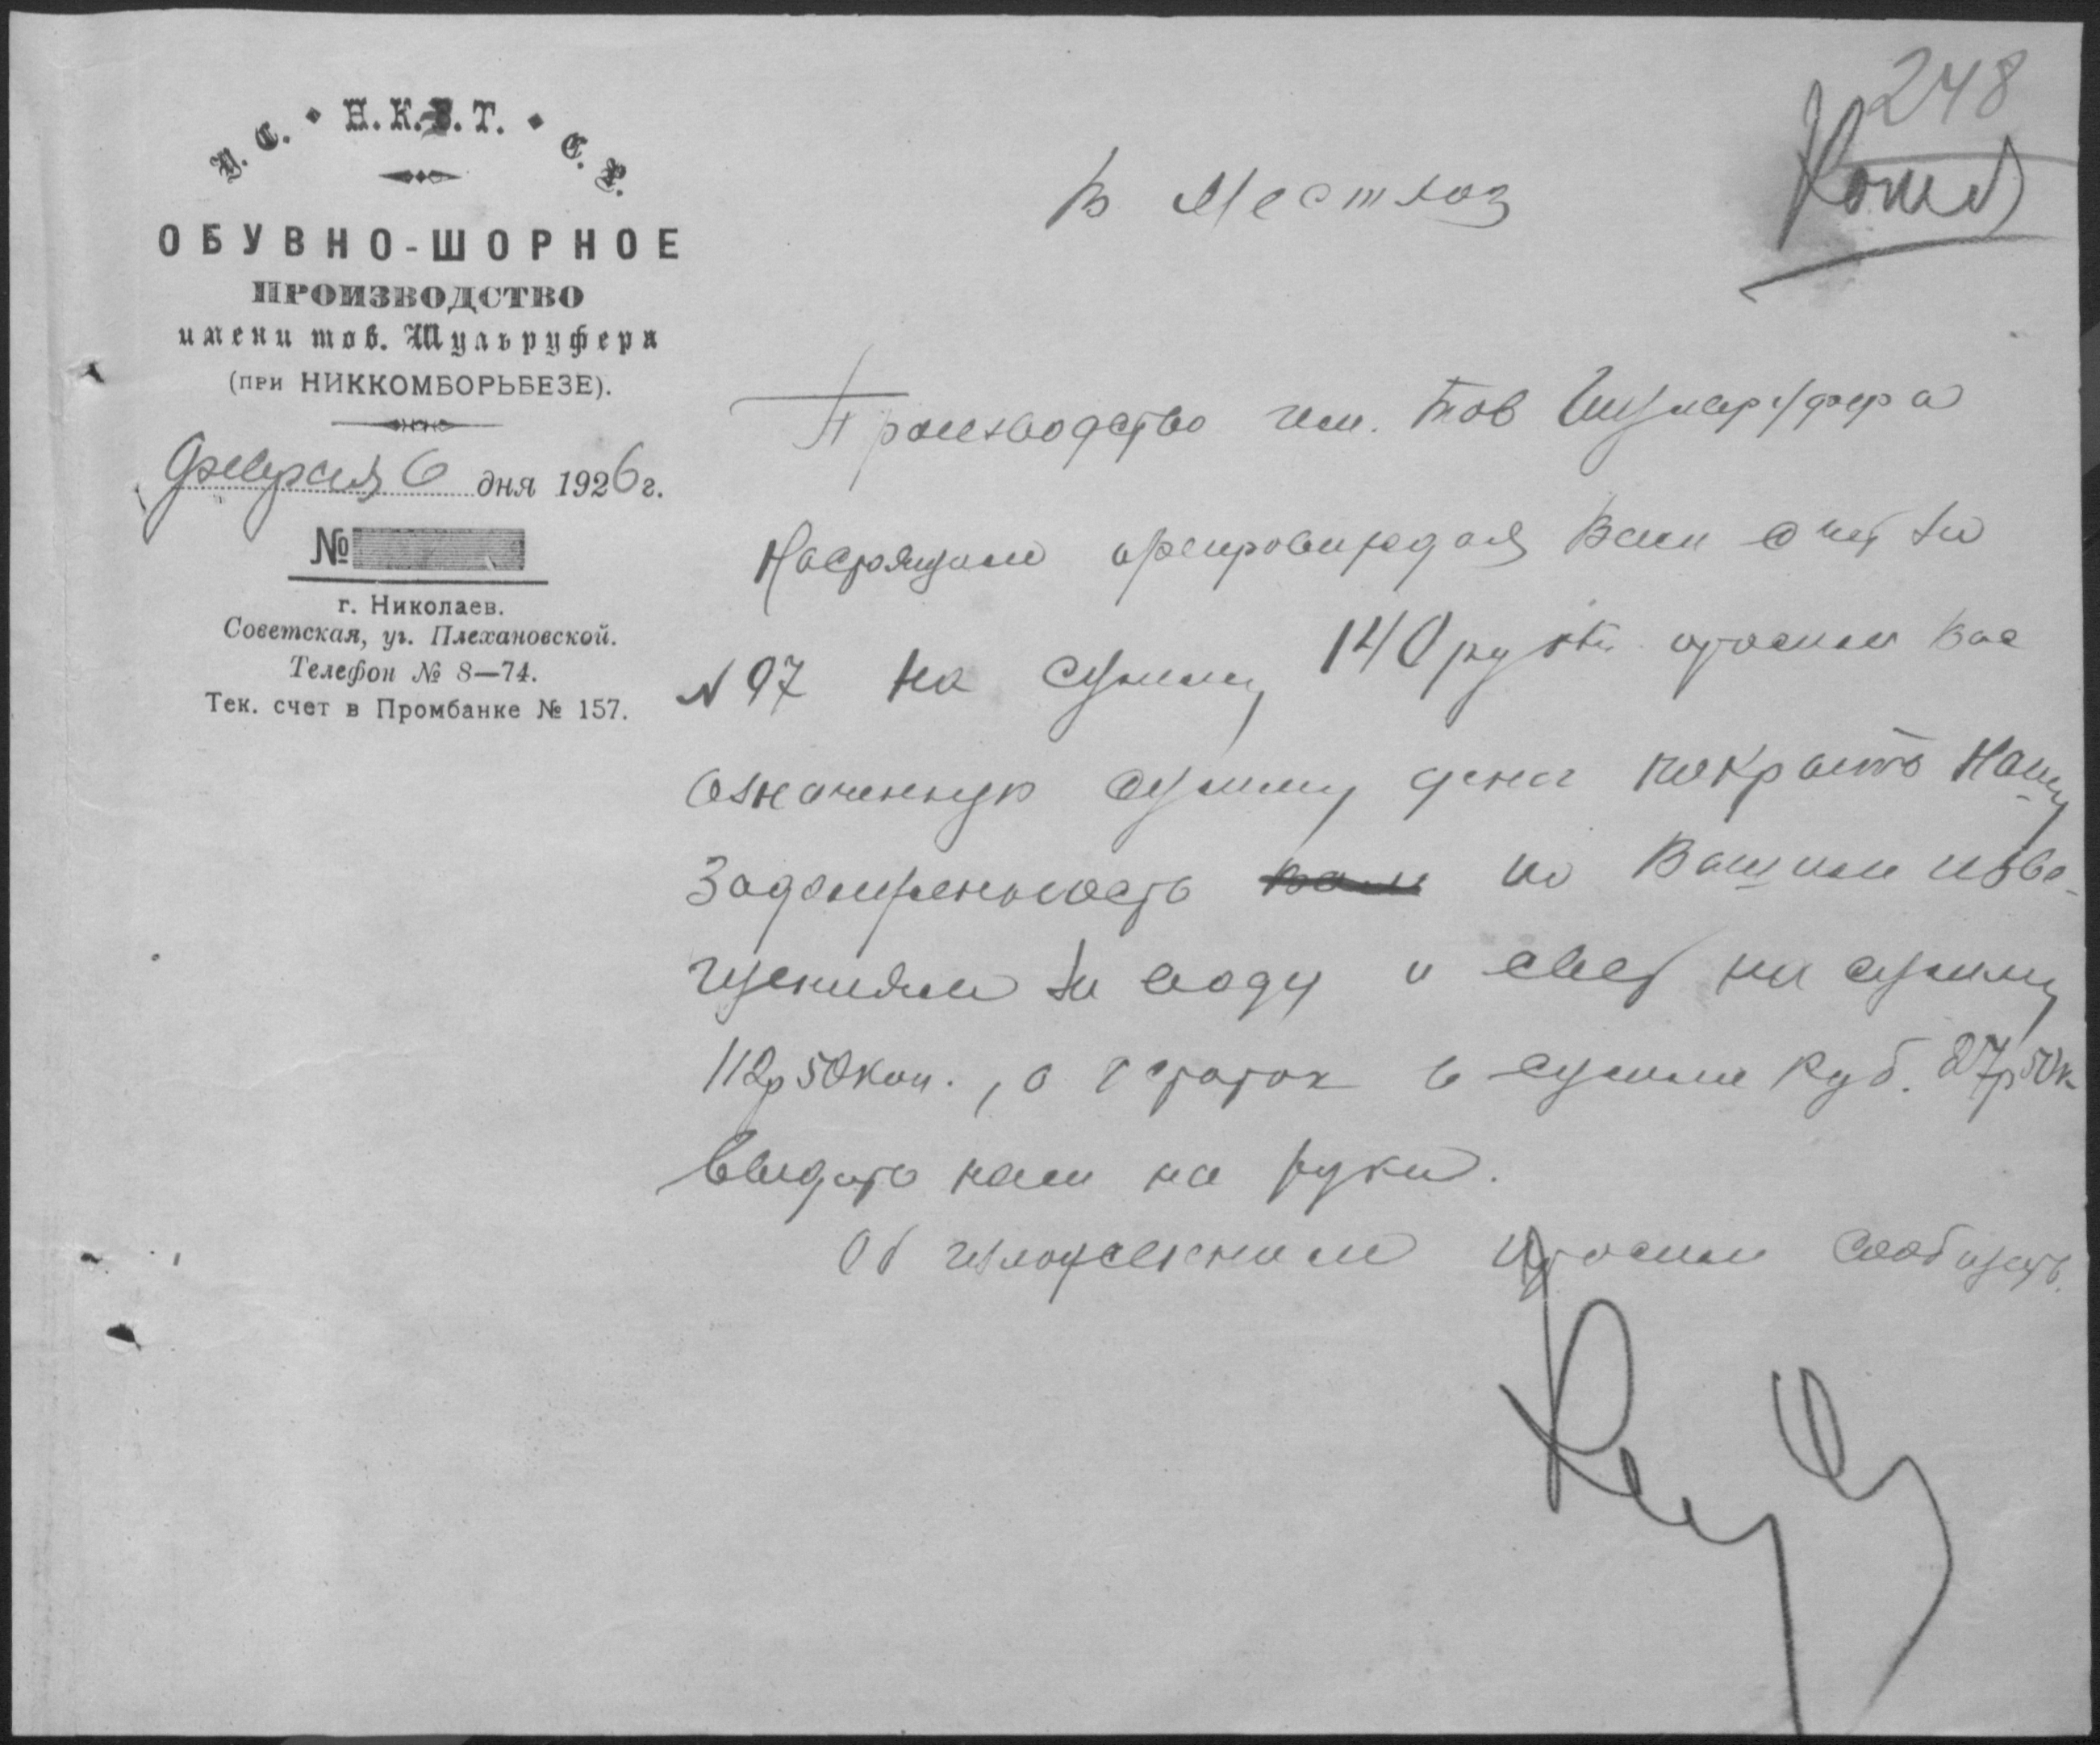 У. С. • Н. К. В. Т. • С. Р.
ОБУВНО-ШОРНОЕ
ПРОИЗВОДСТВО
имени тов. Шульруфера
(ПРИ НИККОМБОРЬБЕЗЕ).
Февраля 6 дня 1926 г.
№
г. Николаев.
Советская, уг. Плехановской.
Телефон № 8—74.
Тек. счет в Промбанке № 157.
248
В Местхоз
Производство им. тов Шульруфера
Настоящим препровождая Вам счет за
N 97 на сумму 140 руб. просим вас
означенную сумму денег покрыть нашу
задолженность вам по Вашим изве-
щениям за воду и свет на сумму
112р 50коп., а остаток в сумме Руб. 27р 50к
выдать нам на руки.
Об изложенном просим сообщить.